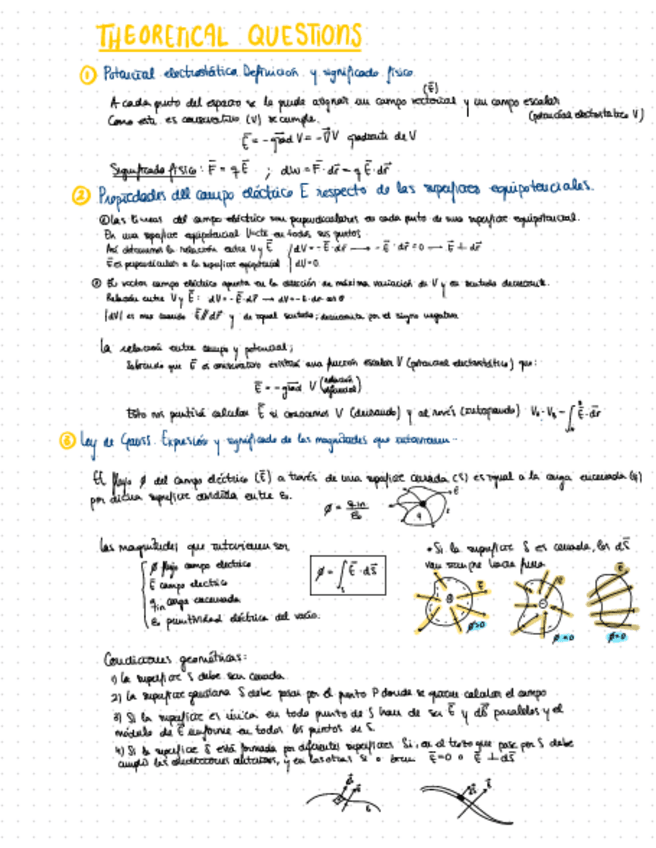 THEORETICAL QUESTIONS
① Potencial electrostático. Definición y significado físico.
A cada punto del espacio se le puede asignar un campo vectorial y un campo escalar
(E⃗)
(potencial electrostático V)
Como este es conservativo (V) se cumple.
E⃗ = -grad V = -∇⃗V gradiente de V
Significado físico: F⃗ = qE⃗ ; dW = F⃗·dr⃗ = qE⃗·dr⃗
② Propiedades del campo eléctrico E respecto de las superficies equipotenciales.
las líneas del campo eléctrico son perpendiculares en cada punto de una superficie equipotencial.
En una superficie equipotencial V=cte en todos sus puntos
Así obtenemos la relación entre V y E⃗ dV = -E⃗·dr⃗ → -E⃗·dr⃗ = 0 → E⃗ ⊥ dr⃗
E⃗ es perpendicular a la superficie equipotencial dV=0
El vector campo eléctrico apunta en la dirección de máxima variación de V y en sentido decreciente.
Relación entre V y E⃗: dV = -E⃗·dr⃗ → dV = -E·dr·cos θ
|dV| es max cuando E⃗∥dr⃗ y de igual sentido; decreciente por el signo negativo
La relación entre campo y potencial;
Sabiendo que E⃗ es conservativo existirá una función escalar V (potencial electrostático) que:
E⃗ = -grad V (relación diferencial)
Esto nos permitirá calcular E⃗ si conocemos V (derivando) y al revés (integrando)
③ Ley de Gauss. Expresión y significado de las magnitudes que intervienen.
El flujo φ del campo eléctrico (E⃗) a través de una superficie cerrada (S) es igual a la carga encerrada (q)
por dicha superficie dividida entre ε₀.
φ = q_in / ε₀
Las magnitudes que intervienen son
φ flujo campo eléctrico
E⃗ campo eléctrico
q_in carga encerrada
ε₀ permitividad eléctrica del vacío.
φ = ∫_S E⃗·dS⃗
• Si la superficie S es cerrada, los dS⃗
van siempre hacia fuera
φ>0
φ<0
φ=0
Condiciones geométricas:
1) la superficie S debe ser cerrada
2) La superficie gaussiana S debe pasar por el punto P donde se quiere calcular el campo
3) Si la superficie es única en todo punto de S han de ser E⃗ y dS⃗ paralelos y el
módulo de E⃗ uniforme en todos los puntos de S.
4) Si la superficie S está formada por diferentes superficies Si, en el trozo que pase por S debe
cumplir las condiciones anteriores, y en las otras E=0 o E⃗ ⊥ dS⃗